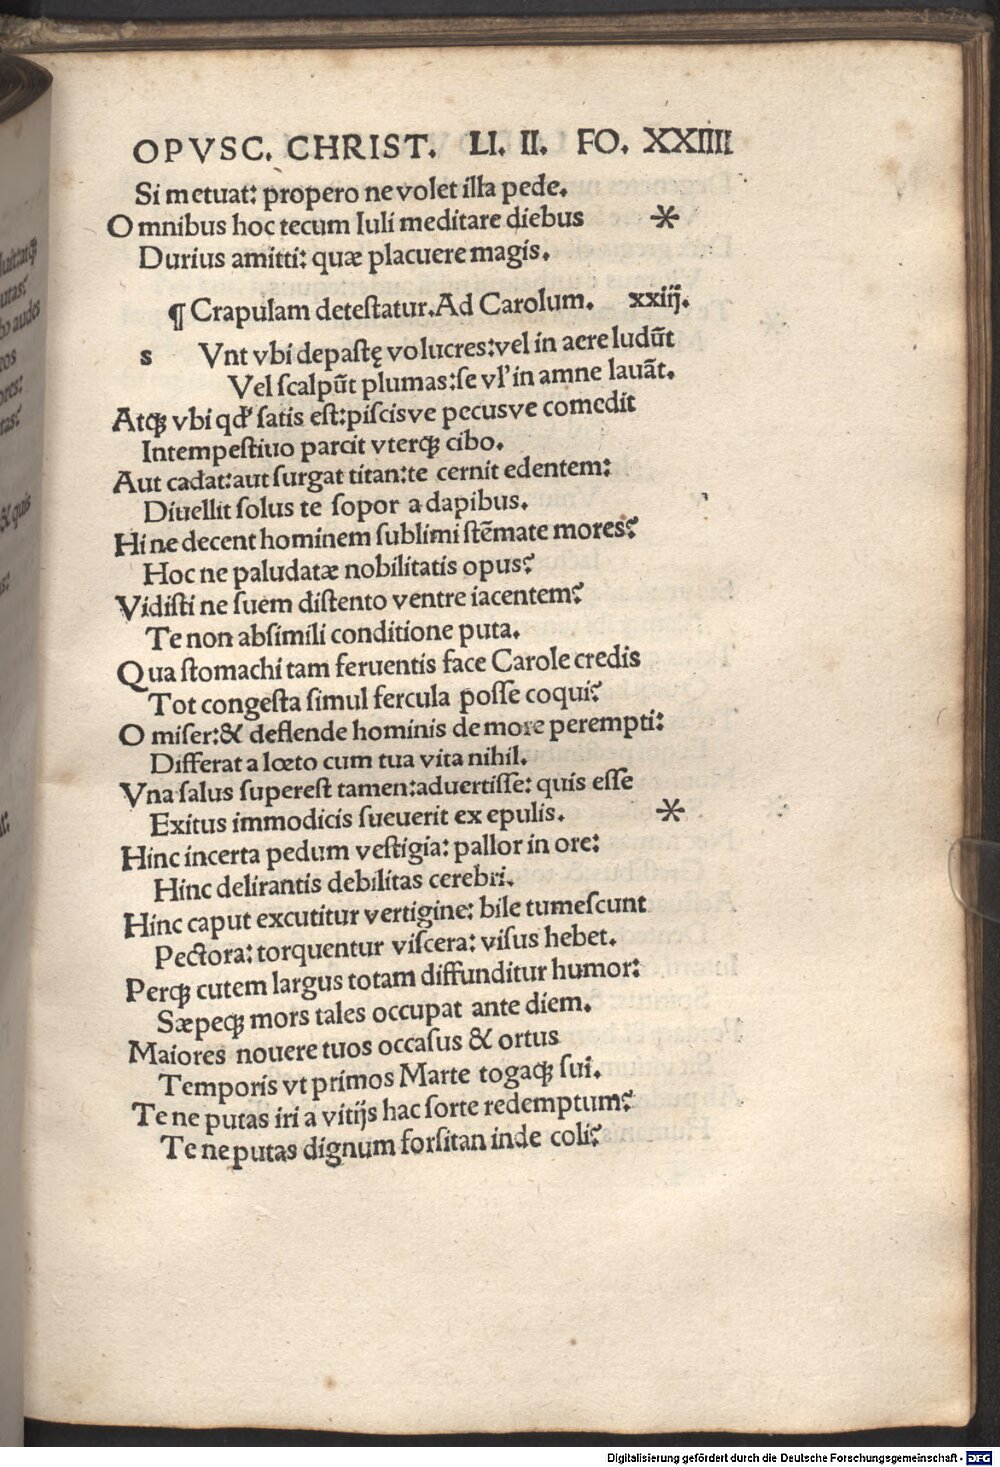 OPVSC. CHRIST. LI. II. FO. XXIIII
Si metuat: propero ne volet illa pede.
O mnibus hoc tecum Iuli meditare diebus *
Durius amitti: quæ placuere magis.
¶ Crapulam detestatur. Ad Carolum. xxiij.
s Vnt vbi depastę volucres: vel in aere ludũt
Vel scalpũt plumas: se vl' in amne lauãt.
Atqꝫ vbi qđ satis est: piscisve pecusve comedit
Intempestiuo parcit vterqꝫ cibo.
Aut cadat: aut surgat titan: te cernit edentem:
Diuellit solus te sopor a dapibus.
Hi ne decent hominem sublimi stẽmate mores?
Hoc ne paludatæ nobilitatis opus?
Vidisti ne suem distento ventre iacentem?
Te non absimili conditione puta.
Qua stomachi tam feruentis face Carole credis
Tot congesta simul fercula posse coqui?
O miser: & deflende hominis de more perempti:
Differat a lœto cum tua vita nihil.
Vna salus superest tamen: aduertisse: quis esse
Exitus immodicis sueuerit ex epulis. *
Hinc incerta pedum vestigia: pallor in ore:
Hinc delirantis debilitas cerebri.
Hinc caput excutitur vertigine: bile tumescunt
Pectora: torquentur viscera: visus hebet.
Perqꝫ cutem largus totam diffunditur humor:
Sæpeqꝫ mors tales occupat ante diem.
Maiores nouere tuos occasus & ortus
Temporis vt primos Marte togaqꝫ sui.
Te ne putas iri a vitijs hac sorte redemptum?
Te ne putas dignum forsitan inde coli?
luit: atqꝫ
utas?
bo audes
eos
ores:
tas?
& quis
Digitalisierung gefördert durch die Deutsche Forschungsgemeinschaft - DFG